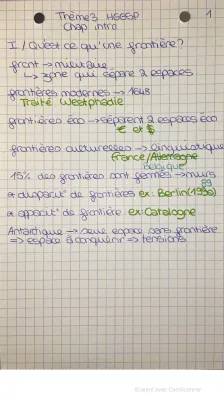 Thème 3 HGGSP
1
Chap intro
I / Qu'est ce qu'une frontière?
front → militaire
↳ zone qui sépare 2 espaces
frontières modernes → 1648
Traité Westphalie
frontières éco → séparent 2 espaces éco
€ et $
frontières culturelles → linguistique
France/Allemagne
Belgique
15% des frontières sont fermés → murs
* disparat° de frontières ex: Berlin (1990)
89
* apparat° de frontière ex: Catalogne
Antarctique → seul espace sans frontière
=> espace à conquérir => tensions
Scanned with CamScanner